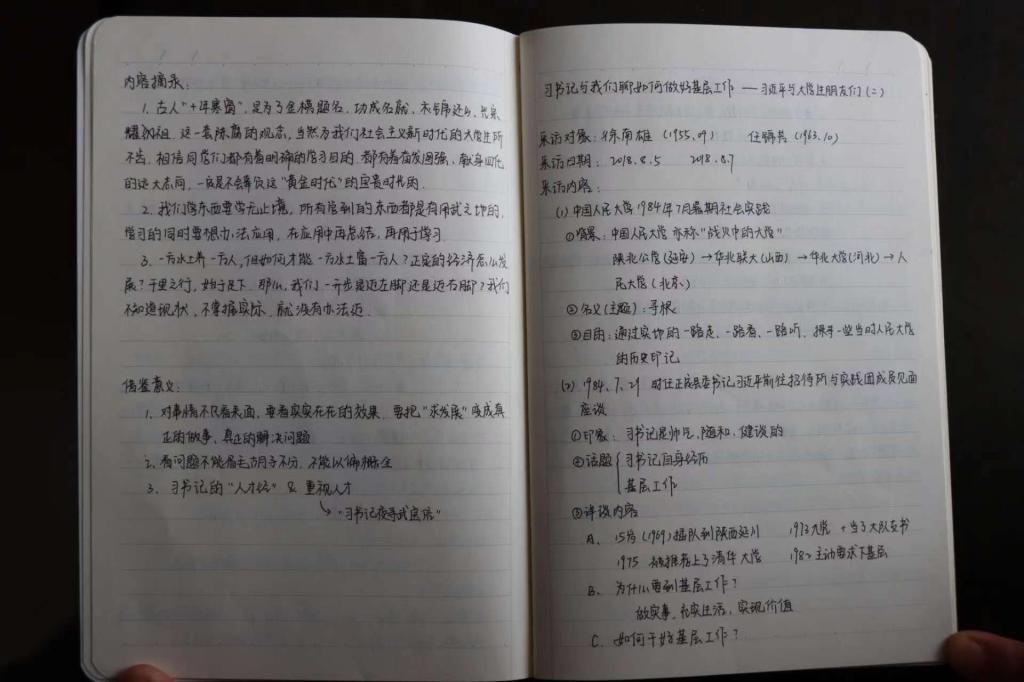 内容摘录：
1. 古人"十年寒窗"，是为了金榜题名，功成名就，衣锦还乡，光宗
耀祖。这一套陈腐的观念，当然为我们社会主义新时代的大学生所
不齿。相信同学们都有着明确的学习目的，都有着奋发图强、献身四化
的远大志向，一定是不会辜负这"黄金时代"的宝贵时代的.
2. 我们学东西要学无止境，所有学到的东西都是有用武之地的，
学习的同时要想办法应用，在应用中再总结，再用于学习.
3. 一方水土养一方人，但如何才能一方水土富一方人？正定的经济怎么发
展？千里之行，始于足下. 那么，我们一步是迈左脚还是迈右脚？我们
不知道现状，不掌握实际，就没有办法迈.
借鉴意义：
1. 对事情不只看表面，要看实实在在的效果. 要把"求发展"变成真
正的做事、真正的解决问题
2. 看问题不能眉毛胡子不分，不能以偏概全
3. 习书记的"人才经" & 重视人才
↳ "习书记夜寻武宝信"
习书记与我们聊如何做好基层工作 —— 习近平与大学生朋友们（二）
采访对象：徐南雄（1955.09） 任锦其（1963.10）
采访日期：2018.8.5 2018.8.7
采访内容：
(1) 中国人民大学1984年7月暑期社会实践
①背景：中国人民大学 亦称"战火中的大学"
陕北公学(延安) → 华北联大(山西) → 华北大学(河北) → 人
民大学（北京）
②名义(主题)：寻根
③目的：通过实地的一路走、一路看、一路听，探寻一些当时人民大学
的历史印记
(2) 1984.7.29 时任正定县委书记习近平前往招待所与实践团成员见面
座谈
①印象：习书记是帅气，随和，健谈的
②话题 { 习书记自身经历
基层工作
③详谈内容
A、15岁（1969）插队到陕西延川 1973入党 + 当了大队支书
1975 被推荐上了清华大学 1982 主动要求下基层
B、为什么要到基层工作？
做实事，充实生活，实现价值
C、如何干好基层工作？